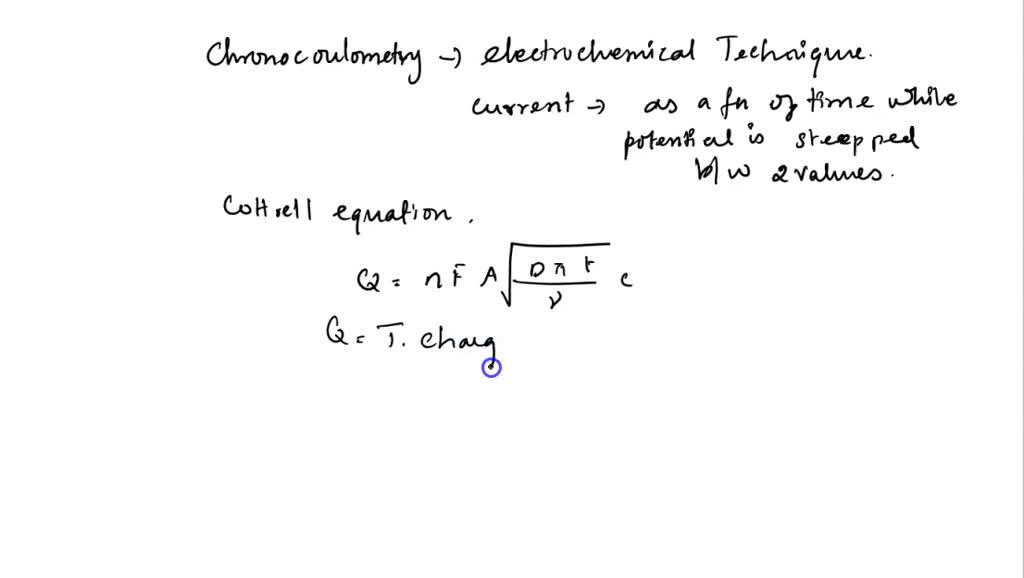 Chronocoulometry → electrochemical Technique.
current → as a fn of time while
potential is stepped
b/w 2 values.
Cottrell equation.
Q = n F A √(D π t / ν) c
Q = T. charg